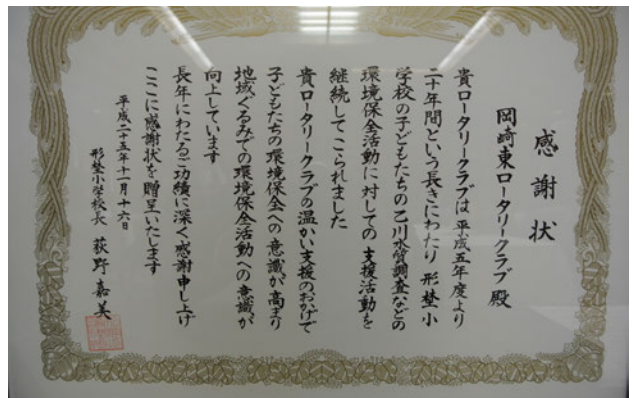 感謝状
岡崎東ロータリークラブ 殿
貴ロータリークラブは 平成五年度より
二十年間という長きにわたり 形埜小
学校の子どもたちの乙川水質調査などの
環境保全活動に対しての 支援活動を
継続してこられました
貴ロータリークラブの温かい支援のおかげで
子どもたちの環境保全への意識が高まり
地域ぐるみでの環境保全活動への意識が
向上しています
長年にわたるご功績に深く感謝申し上げ
ここに感謝状を贈呈いたします
平成二十五年十一月十六日
形埜小学校長 荻野嘉美